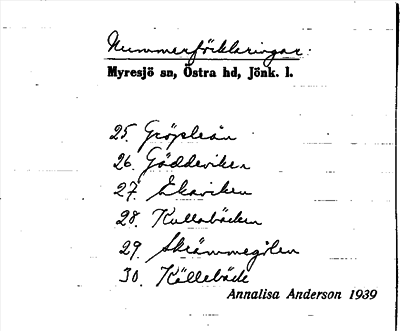 Nummerförklaringar:
Myresjö sn, Östra hd, Jönk. l.
25. Gröpleån
26. Gäddeviken
27. Ekaviken
28. Kullabäcken
29. Skrämmegölen
30. Källebäck
Annalisa Anderson 1939